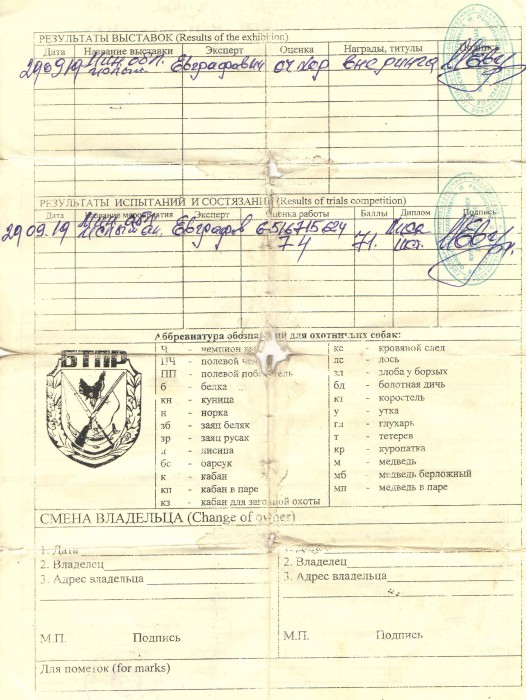 РЕЗУЛЬТАТЫ ВЫСТАВОК (Results of the exhibition)
Дата Название выставки Эксперт Оценка Награды, титулы Подпись
29 09 19 Мин. обл. Евграфович оч хор вне ринга
РЕЗУЛЬТАТЫ ИСПЫТАНИЙ И СОСТЯЗАНИЙ (Results of trials competition)
Дата Название мероприятия Эксперт Оценка работы Баллы Диплом Подпись
29 09. 19 Мин. обл. Евграфов
74 71.
Аббревиатура обозначений для охотничьих собак:
БТПР
Ч - чемпион
ПЧ - полевой чемпион
ПП - полевой победитель
б - белка
кн - куница
н - норка
зб - заяц беляк
зр - заяц русак
л - лисица
бс - барсук
к - кабан
кп - кабан в паре
кз - кабан для загонной охоты
кс - кровяной след
лс - лось
зл - злоба у борзых
бд - болотная дичь
кт - коростель
у - утка
гл - глухарь
т - тетерев
кр - куропатка
м - медведь
мб - медведь берложный
мп - медведь в паре
СМЕНА ВЛАДЕЛЬЦА (Change of owner)
1. Дата
2. Владелец
3. Адрес владельца
М.П. Подпись
1. Дата
2. Владелец
3. Адрес владельца
М.П. Подпись
Для пометок (for marks)